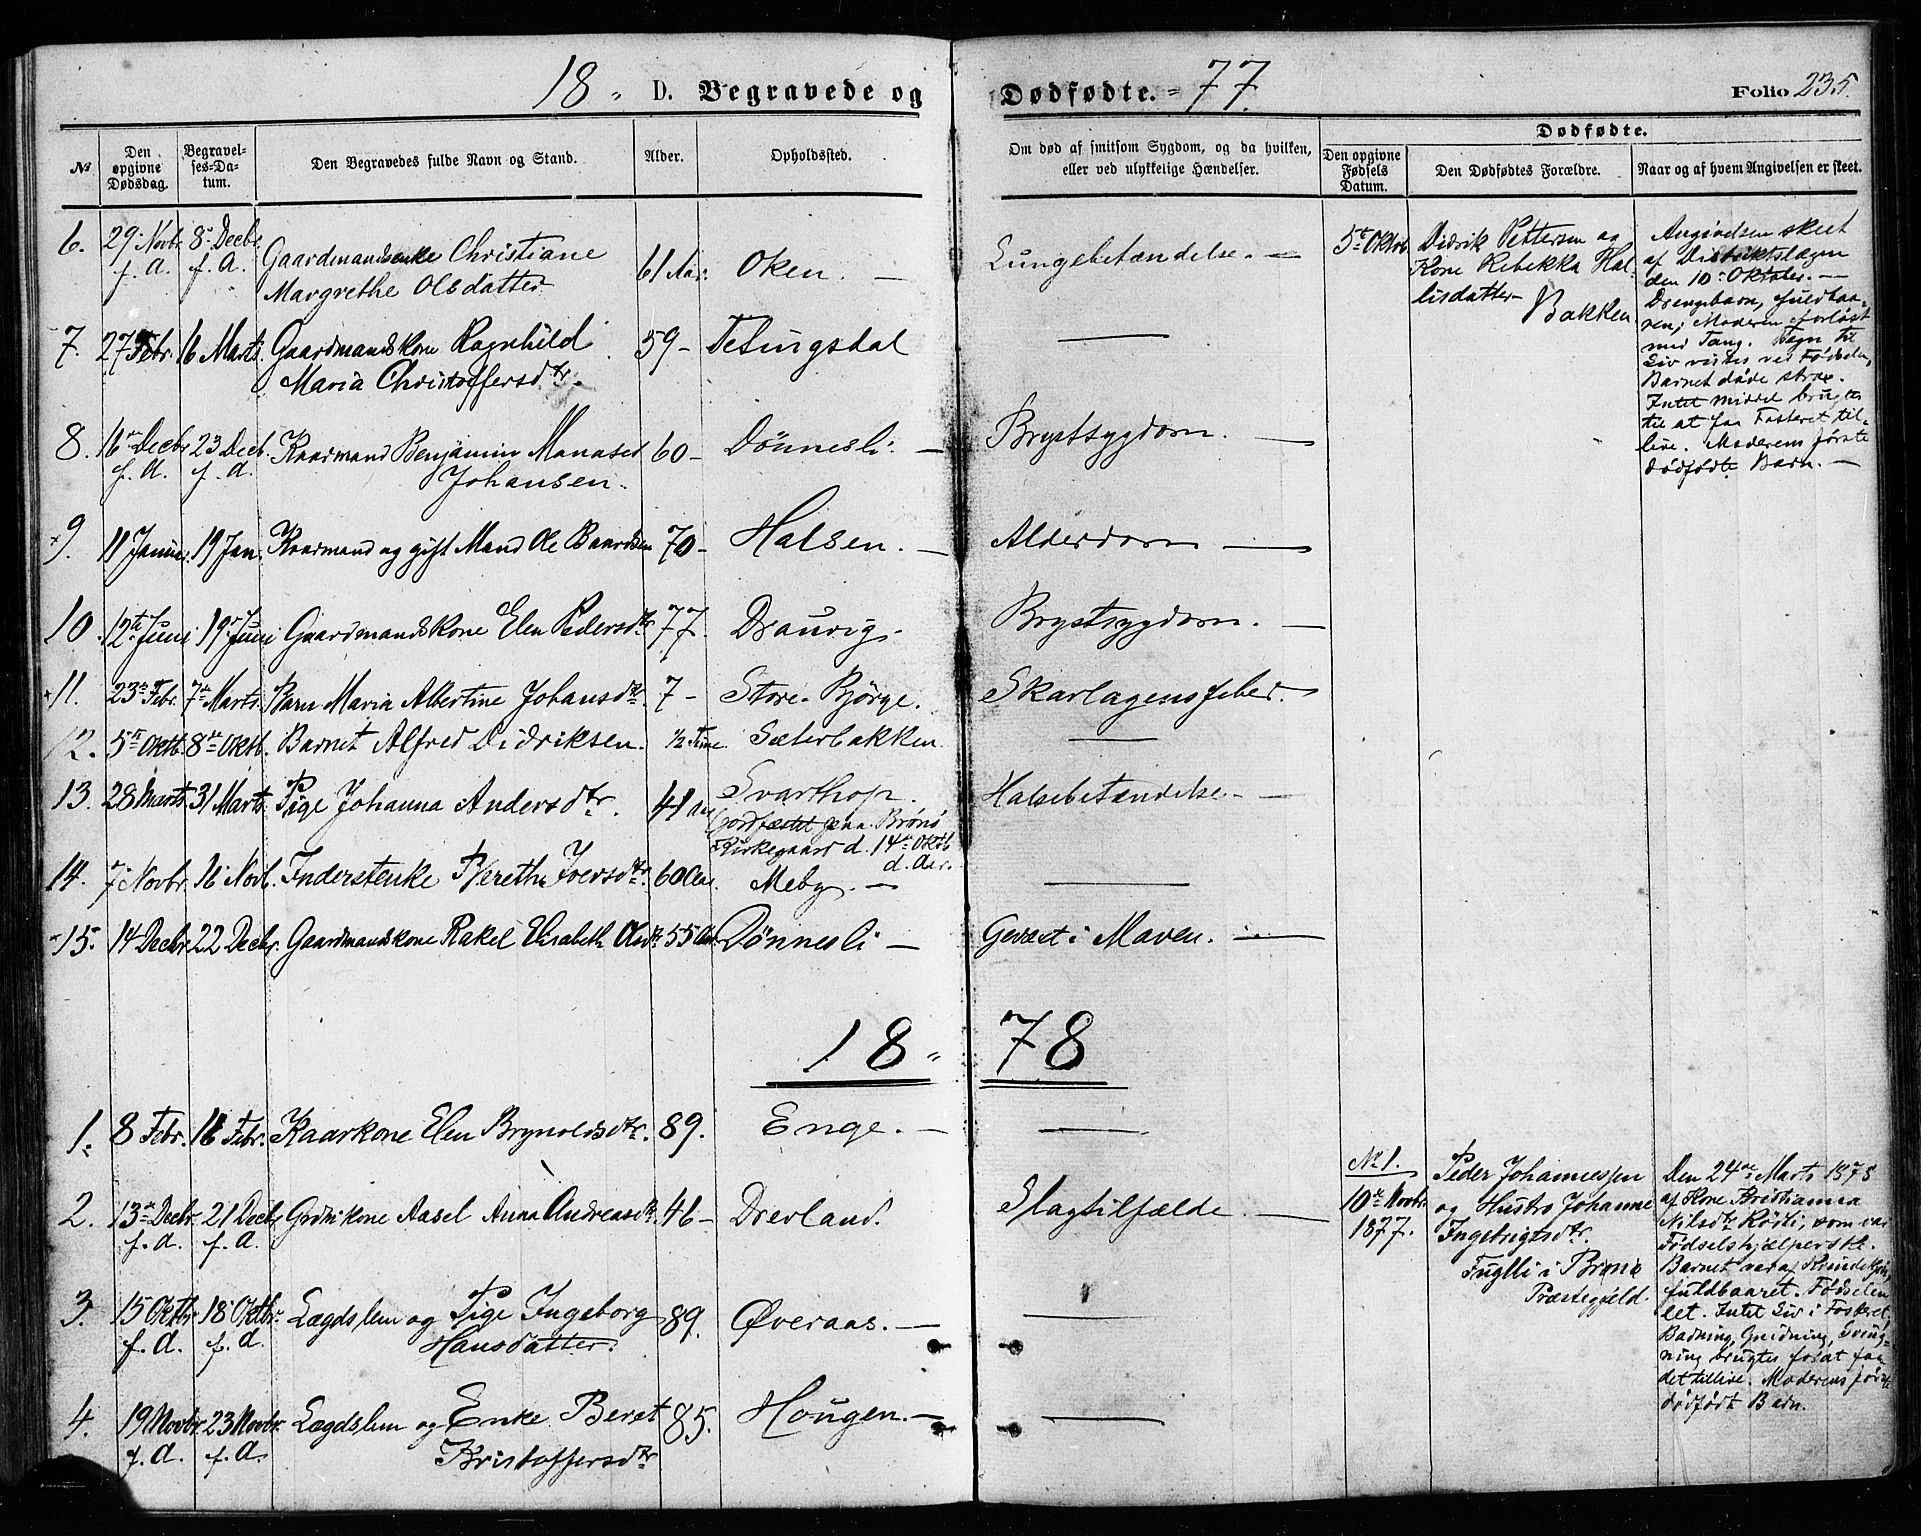 18 " D. Begravede og Dødfødte. = 77. Folio 235.
Dødfødte.
№ Den opgivne Dødsdag. Begravelses-Datum. Den Begravedes fulde Navn og Stand. Alder. Opholdssted. Om død af smitsom Sygdom, og da hvilken, eller ved ulykkelige Hændelser. Den opgivne Fødsels Datum. Den Dødfødtes Forældre. Naar og af hvem Angivelsen er skeet.
6. 29. Novbr. f. A. 8. Decbr. f. A. Gaardmandsenke Christiane
Margrethe Olsdatter 61 Aar. Oken. — Lungebetændelse. —
5te Oktob. Didrik Pettersen og
Kone Rebekka Hal-
lisdatter
Bakken
Angivelsen skeet
af Distriktslægen
den 10. Oktober. —
Drengebarn, fuldbaa-
ren; Moderen forløst
med Tang. Tegn til
Liv vistes ved Fødselen,
Barnet døde strax.
Intet middel brugtes
til at faa Fosteret til-
live. Moderens første
dødfødte Barn. —
7. 27 Febr. 16 Marts. Gaardmandskone Ragnhild
Maria Christoffersdtr. 59 - Tetingsdal ———
8. 16de Decbr. f. A. 23 Decb. f. A. Kaarmand Benjamin Manases
Johansen. 60 - Dönnesli. — Brystsygdom. —
9. 11 Januar. 19 Jan. Kaarmand og gift Mand Ole Baardsen 70 - Halsen. — Alderdom —
10. 12te Juni 19. Juni Gaardmandskone Elen Pedersdtr. 77. Drauvig - Brystsygdom. —
11. 23de Febr. 7de Marts. Barn Maria Albertine Johansdtr. 7 - Store-Björge. Skarlagensfeber. —
12. 5te Oktb. 8de Oktb. Barnet Alfred Didriksen. ½ Time Sæterbakken. ———
13. 28 Marts 31 Marts. Pige Johanna Andersdtr. 41 Aar Svarthop.
(jordfæstet paa Brønø
Kirkegaard d. 14de Oktb
d. Aar.
Halsebetændelse. —
14. 7. Novbr. 16 Novb. Inderstenke Bereth Iversdtr. 60 Aar. Meby. — ———
15. 14 Decbr. 22 Decbr. Gaardmandskone Rakel Elisabeth Olsdtr. 55 Aar. Dönnesli — Gevæxt i Maven. —
18 " 78
1. 8 Febr. 16 Febr. Kaarkone Elen Brynoldsdtr. 89. Enge. — ———
2. 13de Decbr. f. A. 21 Decbr. f. A. Grdm.kone Aasel Anna Andreasdtr. 46 - Drevland. Slagtilfælde. —
No 1.
10de Novbr.
1877.
Peder Johannessen
og Hustro Johanne
Ingebrigtsdtr.
Fuglli i Brønø
Præstegjeld.
Den 24de Marts 1878
af Kone Kristianna
Nilsdtr Rødli, som var
Fødselshjælperske.
Barnet var af Kvindekjøn,
fuldbaaret. Fødselen
let. Intet Liv i Fosteret.
Badning, Gnidning, Sving-
ning brugtes forat faa
det tillive. Moderens første
dödfödt Barn.
3. 15 Oktbr. f. A. 18 Oktbr. f. A. Lægdslem og Pige Ingeborg
Hansdatter. 89. Øveraas. — ———
4. 19 Novbr. f. A. 23 Novbr. f. A. Lægdslem og Enke Beret
Kristoffersdtr 85. Hougen. — ———